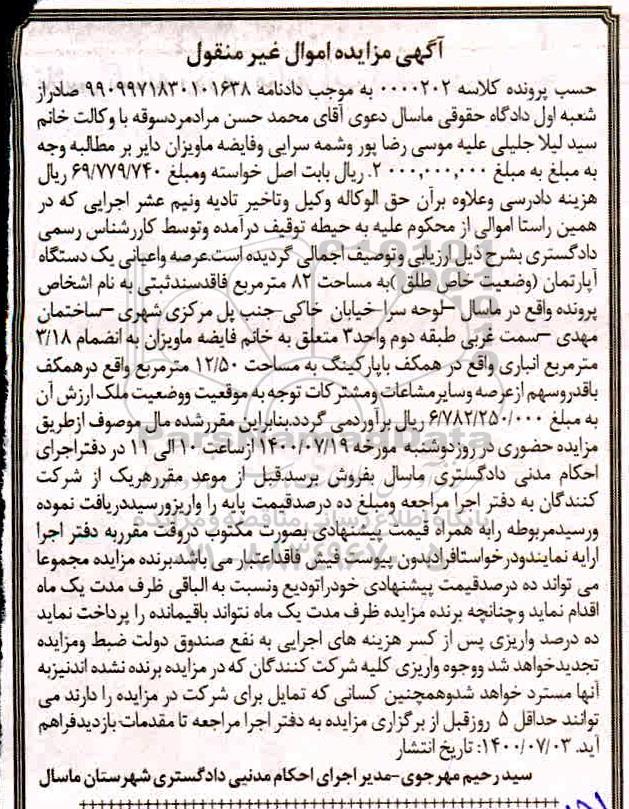 آگهی مزایده اموال غیر منقول
حسب پرونده کلاسه ۰۰۰۰۲۰۲ به موجب دادنامه ۹۹۰۹۹۷۱۸۳۰۱۰۱۶۳۸ صادراز
شعبه اول دادگاه حقوقی ماسال دعوی آقای محمد حسن مرادمردسوقه با وکالت خانم
سید لیلا جلیلی علیه موسی رضا پور وشمه سرایی وفایضه ماویزان دایر بر مطالبه وجه
به مبلغ به مبلغ ۲.۰۰۰,۰۰۰,۰۰۰ ریال بابت اصل خواسته ومبلغ ۶۹/۷۷۹/۷۴۰ ریال
هزینه دادرسی وعلاوه برآن حق الوکاله وکیل وتاخیر تادیه ونیم عشر اجرایی که در
همین راستا اموالی از محکوم علیه به حیطه توقیف درآمده وتوسط کاررشناس رسمی
دادگستری بشرح ذیل ارزیابی وتوصیف اجمالی گردیده است.عرصه واعیانی یک دستگاه
آپارتمان (وضعیت خاص طلق )به مساحت ۸۲ مترمربع فاقدسندثبتی به نام اشخاص
پرونده واقع در ماسال –لوحه سرا-خیابان خاکی-جنب پل مرکزی شهری –ساختمان
مهدی –سمت غربی طبقه دوم واحد۳ متعلق به خانم فایضه ماویزان به انضمام ۳/۱۸
مترمربع انباری واقع در همکف باپارکینگ به مساحت ۱۲/۵۰ مترمربع واقع درهمکف
باقدروسهم ازعرصه وسایرمشاعات ومشترکات توجه به موقعیت ووضعیت ملک ارزش آن
به مبلغ ۶/۷۸۲/۲۵۰/۰۰۰ ریال برآوردمی گردد.بنابراین مقررشده مال موصوف ازطریق
مزایده حضوری در روزدوشنبه مورخه ۱۴۰۰/۰۷/۱۹ ازساعت ۱۰ الی ۱۱ در دفتراجرای
احکام مدنی دادگستری ماسال بفروش برسد.قبل از موعد مقررهریک از شرکت
کنندگان به دفتر اجرا مراجعه ومبلغ ده درصدقیمت پایه را واریزورسیددریافت نموده
ورسیدمربوطه رابه همراه قیمت پیشنهادی بصورت مکتوب دروقت مقرربه دفتر اجرا
ارایه نمایندودرخواستافرادبدون پیوست فیش فاقداعتبار می باشد.برنده مزایده مجموعا
می تواند ده درصدقیمت پیشنهادی خودراتودیع ونسبت به الباقی ظرف مدت یک ماه
اقدام نماید وچنانچه برنده مزایده ظرف مدت یک ماه نتواند باقیمانده را پرداخت نماید
ده درصد واریزی پس از کسر هزینه های اجرایی به نفع صندوق دولت ضبط ومزایده
تجدیدخواهد شد ووجوه واریزی کلیه شرکت کنندگان که در مزایده برنده نشده اندنیزبه
آنها مسترد خواهد شدوهمچنین کسانی که تمایل برای شرکت در مزایده را دارند می
توانند حداقل ۵ روزقبل از برگزاری مزایده به دفتر اجرا مراجعه تا مقدمات بازدیدفراهم
آید. ۱۴۰۰/۰۷/۰۳: تاریخ انتشار
سید رحیم مهرجوی-مدیر اجرای احکام مدنیی دادگستری شهرستان ماسال
ParsNamadData
پایگاه اطلاع رسانی مناقصه و مزایده